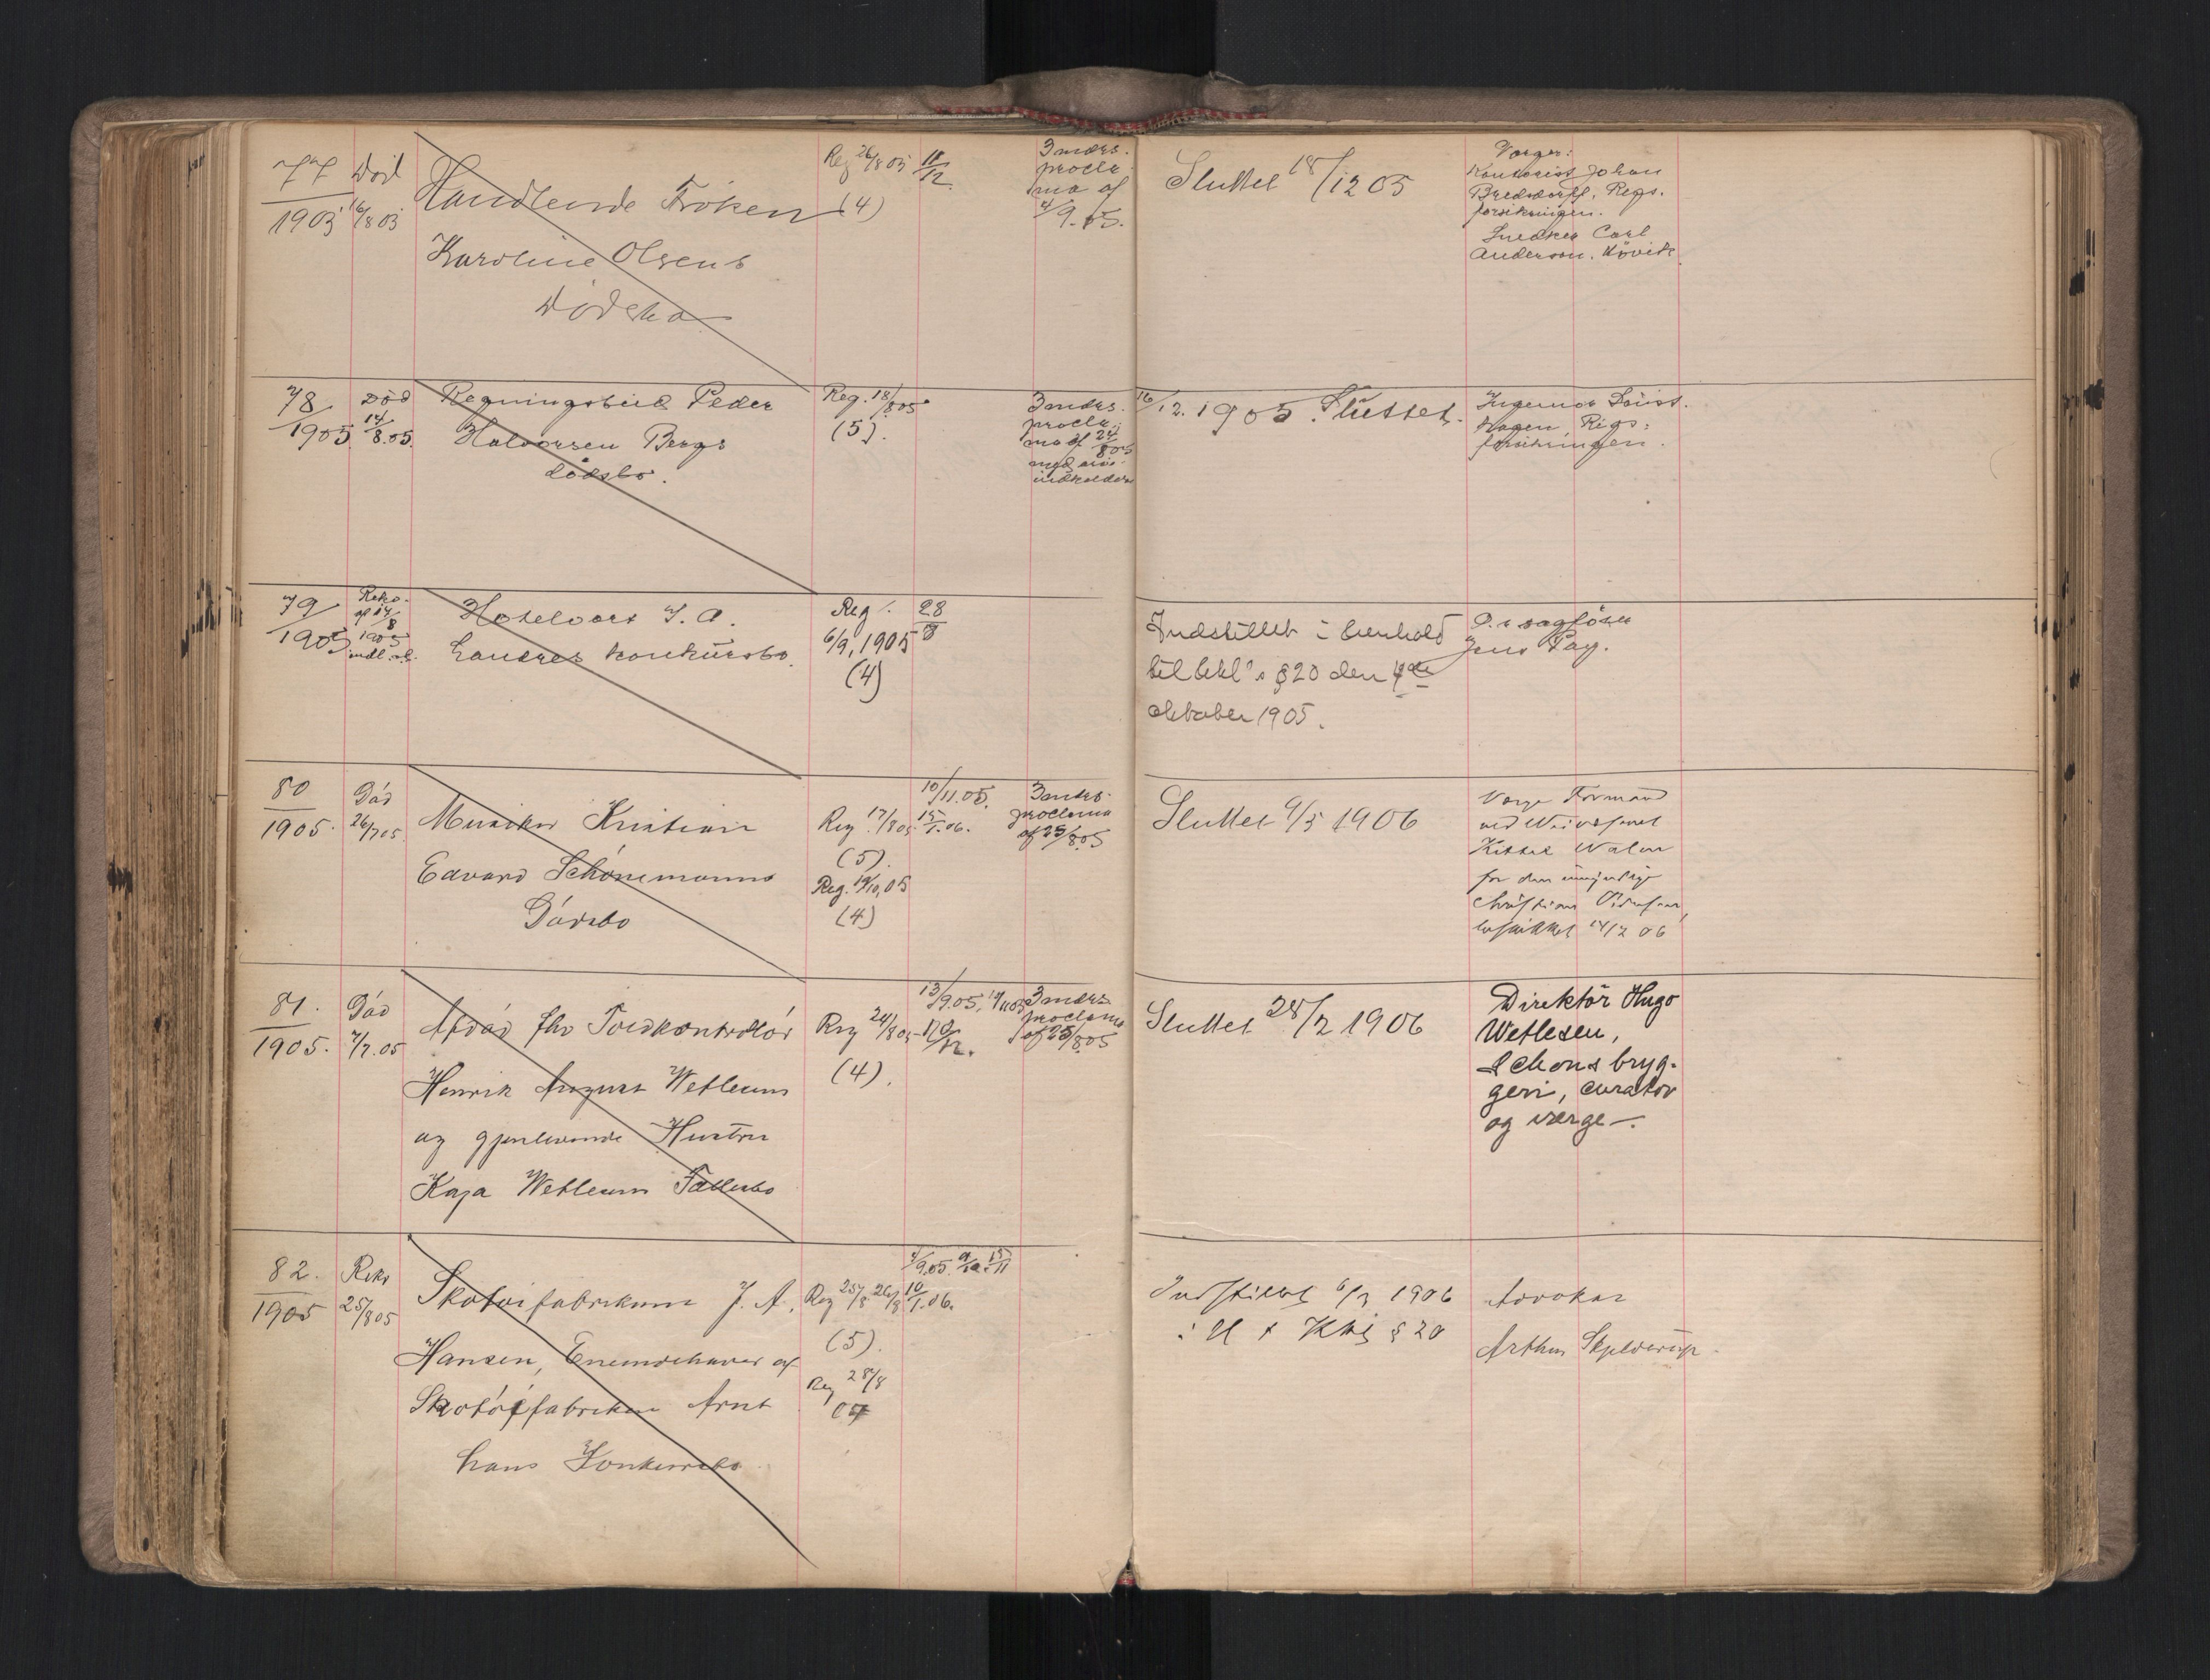 77
1905
Død
16/8 05
Handlende Frøken
Karoline Olsens
Dødsbo
Reg 26/8 05
(4)
11/12
3 mdrs.
procla
ma af
4/9.05.
Sluttet 18/12 05
Verger:
Kontorist Johan
Bredsdorff, Rigs.
forsikringen.
Snedker Carl
Anderson. Høvik
78
1905
Død
14/8.05.
Regningsbud Peder
Halvorsen Bergs
dødsbo.
Reg. 18/8 05
(5).
3 mdrs.
procla
ma af 24/8 05
med
indkalder
16/12. 1905. Sluttet.
Hagen Rigs:
forsikringen.
79
1905
Reko.
af 14/8
1905
Hotelvært J. A.
Landres konkursbo.
Reg.
6/9, 1905
(4)
28/8
Indstillet i henhold
til kkl's § 20 den 4de
oktober 1905.
O.r. sagfører
Jens Pay.
80
1905.
Død
26/7 05
Musiker Kristian
Edvard Schønemanns
Dødsbo
Reg. 17/8 05
(5).
Reg. 19/10, 05
(4)
10/11.05.
15/1.06.
3 mdrs.
proclama
af 25/8 05
Sluttet 9/5 1906
Verge Formand
ved
Kittil
for den umyndige
Christian
14/2 06
81.
1905.
Død
7/7.05
Afdød fhv Toldkontrollør
Henrik August Wetlesens
og gjenlevende Hustru
Kaja Wetlesens Fællesbo
Reg 24/8 05
(4).
13/9.05,
3 mdrs
proclama
af 25/8 05
Sluttet 28/2 1906
Direktör Hugo
Wetlesen,
Schous bryg-
geri, curator
og værge.
82.
1905
Reko
25/8 05
Skotøifabrikant J. A.
Hansen, Eneindehaver af
Skotøifabriken Arnt
Hans Konkursbo.
Reg 25/8 26/8
(5).
Reg 28/8
10/1.06.
Indstillet 6/3 1906
§ 20
Advokat
Arthur Skjelderup.